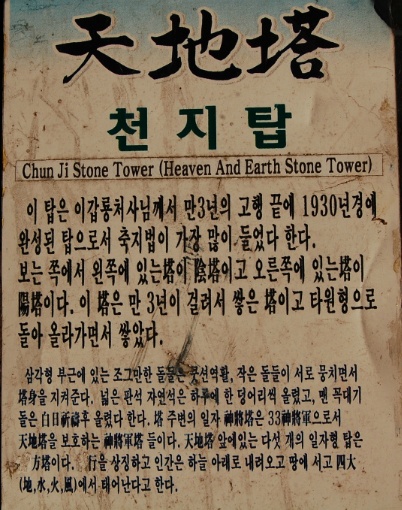 天地塔
천지탑
Chun Ji Stone Tower (Heaven And Earth Stone Tower)
이 탑은 이갑룡처사님께서 만3년의 고행 끝에 1930년경에
완성된 탑으로서 축지법이 가장 많이 들었다 한다.
보는 쪽에서 왼쪽에 있는塔이 陰塔이고 오른쪽에 있는塔이
陽塔이다. 이 塔은 만 3년이 걸려서 쌓은 塔이고 타원형으로
돌아 올라가면서 쌓았다.
삼각형 부근에 있는 조그만한 돌들은 역활, 작은 돌들이 서로 뭉치면서
塔身을 지켜준다. 넓은 판석 자연석은 하루에 한 덩어리씩 올렸고, 맨 꼭대기
돌은 白日祈禱후 올렸다 한다. 塔 주변의 일자 神將塔은 33神將軍으로서
天地塔을 보호하는 神將軍塔 들이다. 天地塔 앞에있는 다섯 개의 일자형 탑은
方塔이다. 行을 상징하고 인간은 하늘 아래로 내려오고 땅에 서고 四大
(地,水,火,風)에서 태어난다고 한다.